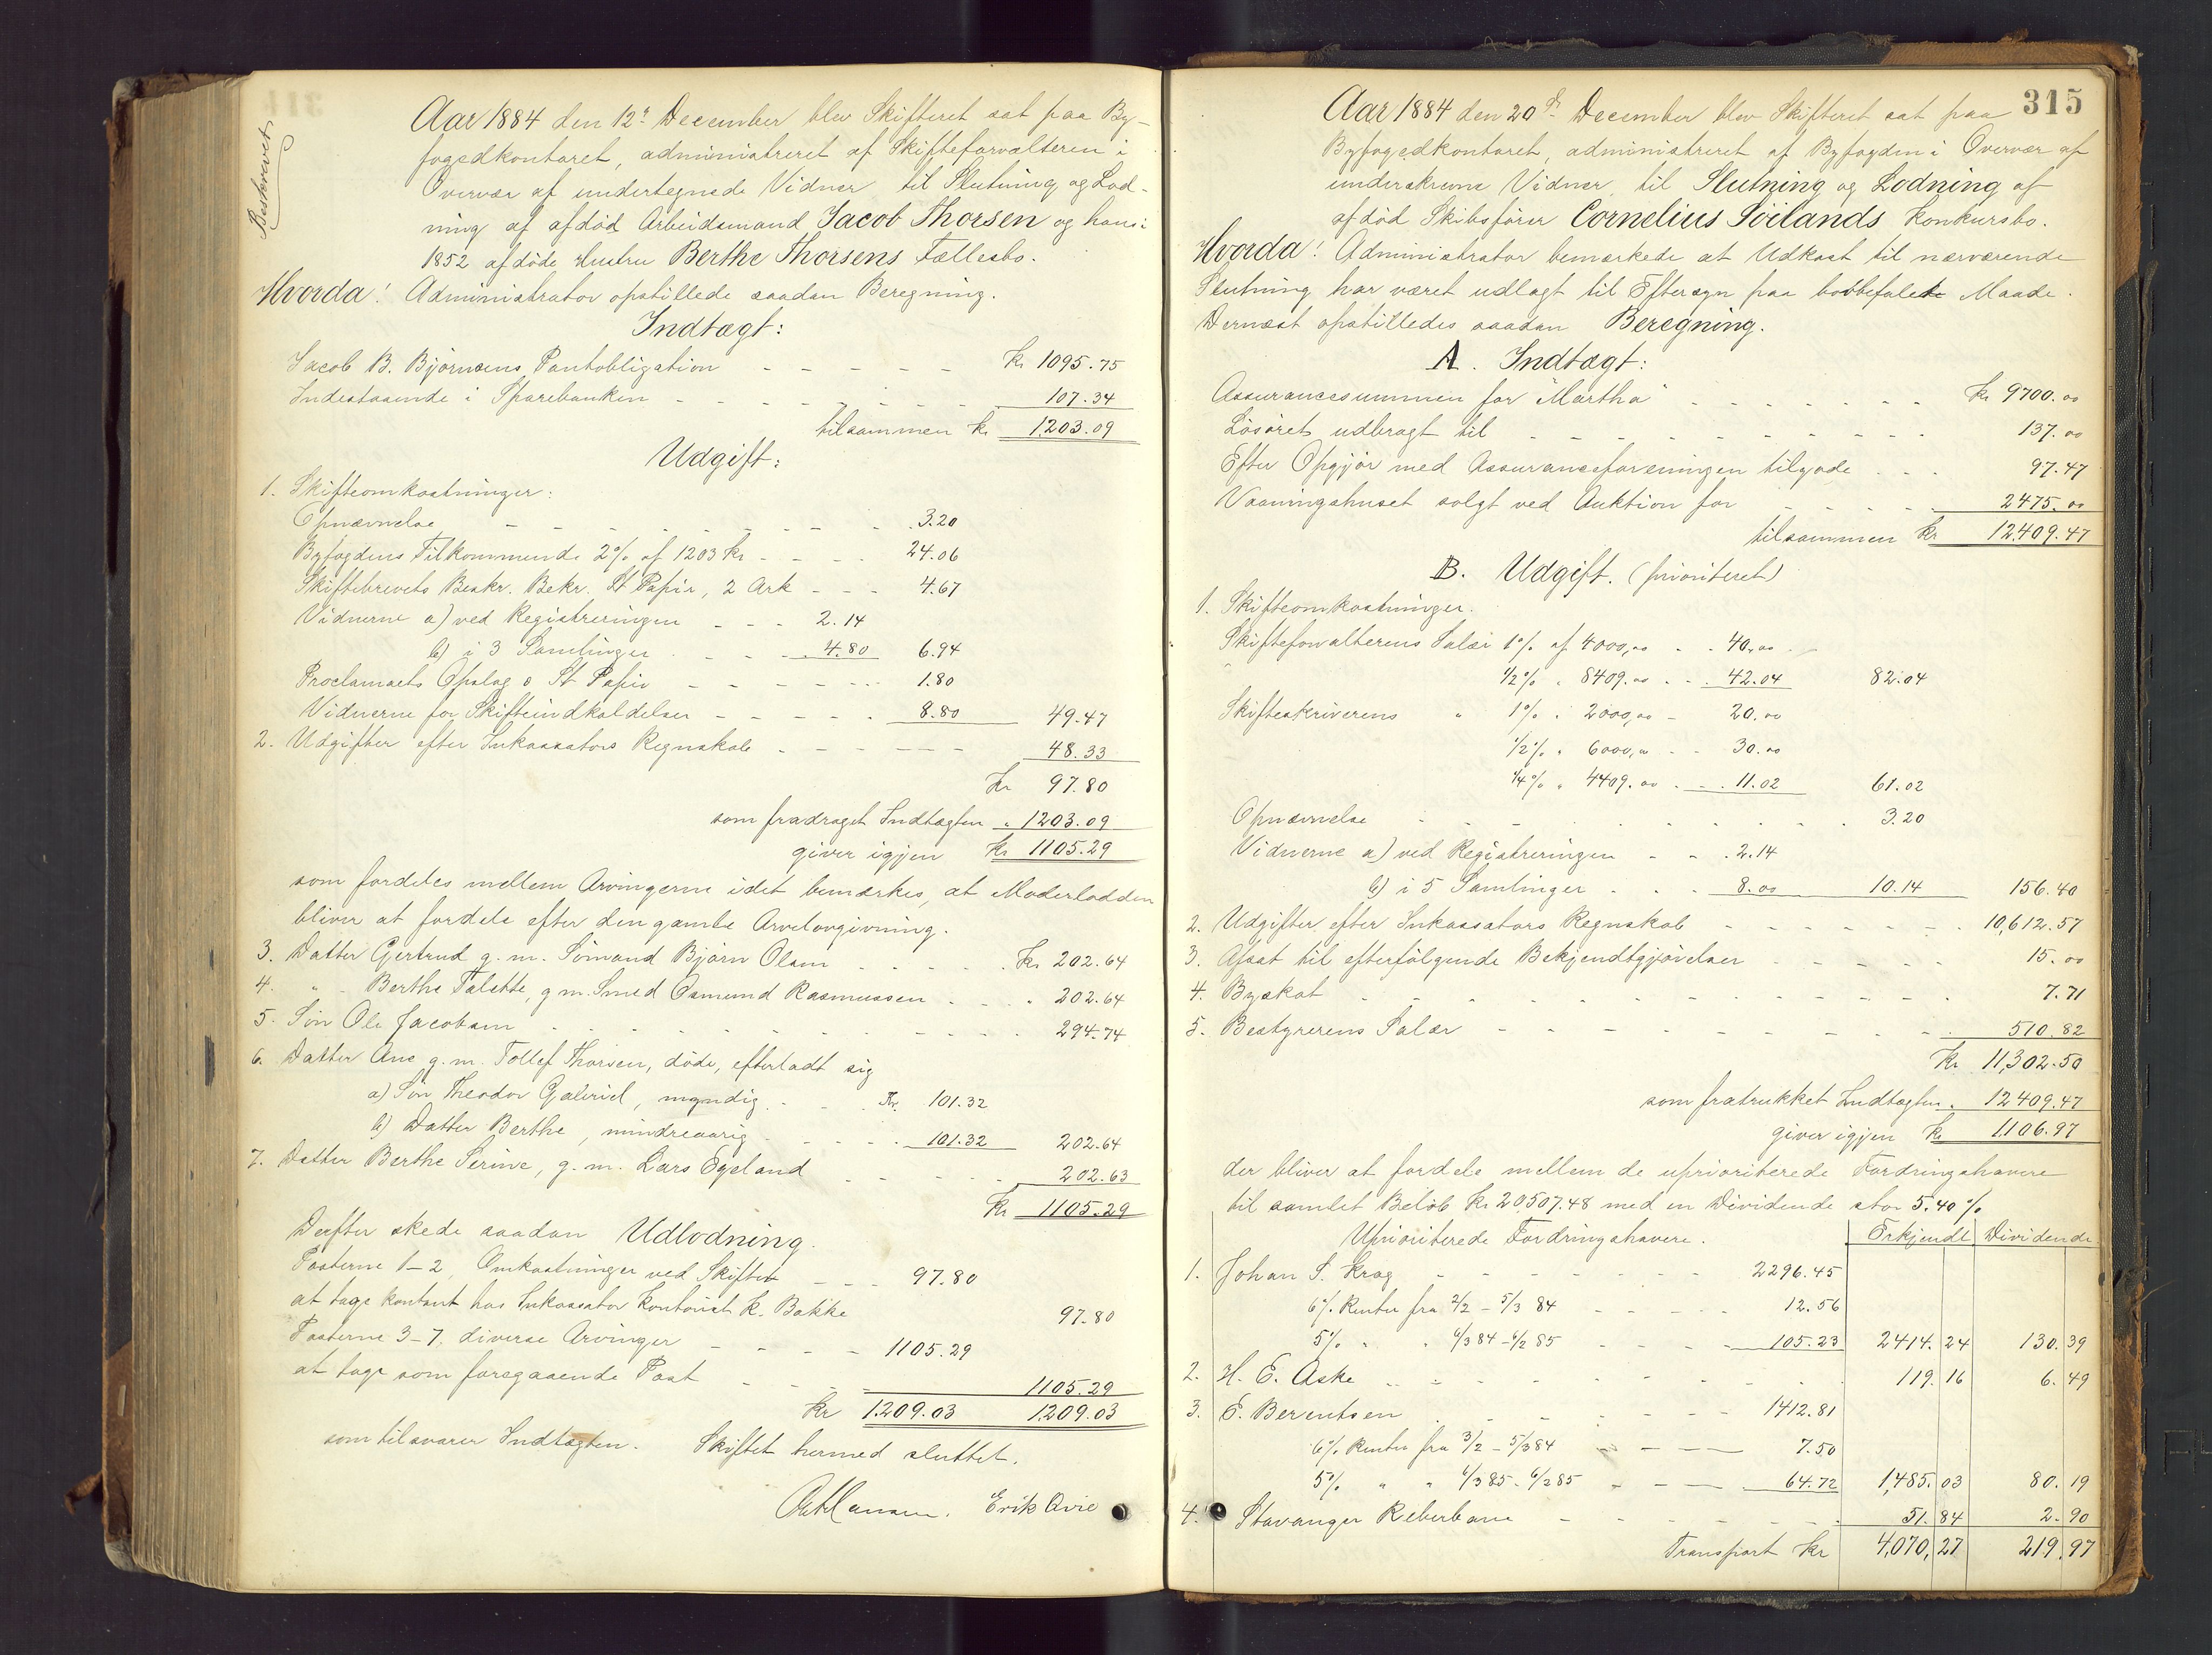 Beskrevet.
Aar 1884 den 12te December blev Skifteret sat paa By-
fogedkontoret, administreret af Skifteforvalteren i
Overvær af undertegnede Vidner til Slutning og Lod-
ning af afdød Arbeidsmand Jacob Thorsen og hans i
1852 afdøde Hustru Berthe Thorsens Fællesbo.
Hvorda! Administrator opstillede saadan Beregning.
Indtægt:
Jacob B. Bjørnsens Pantobligation - - - - - Kr 1095.75
Indestaaende i Sparebanken - - - - - - 107.34
tilsammen Kr 1203.09
Udgift:
1. Skifteomkostninger:
Opnævnelse - - - - - - - - 3.20
Byfogdens Tilkommende 2% af 1203 Kr - - - 24.06
Skiftebrevets Beskr. Bekr. St Papir, 2 Ark - - - 4.67
Vidnerne a) ved Registreringen - - - 2.14
b) i 3 Samlinger - - - 4.80 6.94
Proclamaets Opslag o St Papir - - - - - - 1.80
Vidnerne for Skifteindkaldelser - - - - - 8.80 49.47
2. Udgifter efter Inkassators Regnskab - - - - - 48.33
Kr 97.80
som fradraget Indtægten " 1203.09
giver igjen Kr 1105.29
som fordeles mellem Arvingerne idet bemærkes, at Moderlodden
bliver at fordele efter den gamle Arvelovgivning.
3. Datter Gertrud g. m. Sømand Bjørn Olsen - - - - Kr 202.64
4. " Berthe Talette, g m. Smed Osmund Rasmussen - - - " 202.64
5. Søn Ole Jacobsen - - - - - - - - 294.74
6. Datter Ane g. m. Tollef Thorsen, døde, efterladt sig
a) Søn Theodor Gabriel, myndig - - - Kr. 101.32
b) Datter Berthe, mindreaarig - - - - 101.32 202.64
7. Datter Berthe Serine, g. m. Lars Egeland - - - - - 202.63
Kr 1105.29
Derfter skede saadan Udlodning.
Posterne 1-2, Omkostninger ved Skiftet - - - 97.80
at tage kontant hos Inkassator Kontorist K. Bakke 97.80
Posterne 3-7, diverse Arvinger - - - - 1105.29
at tage som foregaaende Post - - - - 1105.29
Kr 1209.03 1209.03
som tilsvarer Indtægten. Skiftet hermed sluttet.
Erik Qvie
315
Aar 1884 den 20de December blev Skifteret sat paa
Byfogedkontoret, administreret af Byfogden i Overvær af
underskrevne Vidner til Slutning og Lodning af
afdød Skibsfører Cornelius Söilands Konkursbo.
Hvorda! Administrator bemærkede at Udkast til nærværende
Slutning har været udlagt til Eftersyn paa lovbefalet Maade.
Dernæst opstilledes saadan Beregning.
A. Indtægt:
Assurancesummen for "Martha" - - - - - - - Kr 9700.00
Løsøret udbragt til - - - - - - - - - 137.00
Efter Opgjør med Assuranceforeningen tilgode - - - 97.47
Vaaningshuset solgt ved Auktion for - - - - - 2475.00
tilsammen Kr 12409.47
B. Udgift. (prioriteret)
1. Skifteomkostninger.
Skifteforvalterens Salær 1% af 4000,00 - - 40,00
1/2% " 8409.00 - - 42.04 82.04
Skifteskriverens " 1% " 2000,00 - 20.00
1/2% " 6000,00 - - 30.00
1/4% " 4409.00 - - 11.02 61.02
Opnævnelse - - - - - - - - - 3.20
Vidnerne a) ved Registreringen - - - 2.14
b) i 5 Samlinger - - - 8.00 10.14 156.40
2. Udgifter efter Inkassators Regnskab - - - - - - - 10,612.57
3. Afsat til efterfølgende Bekjendtgjørelser - - - - - 15.00
4. Byskat - - - - - - - - - - - 7.71
5. Bestyrerens Salær - - - - - - - - - 510.82
Kr 11,302.50
som fratrukket Indtægten " 12409.47
giver igjen Kr 1106.97
der bliver at fordele mellem de uprioriterede Fordringshavere
til samlet Beløb Kr 20,507.48 med en Dividende stor 5.40%
Uprioriterede Fordringshavere. Erkjendt Dividende
1. Johan S. Krag - - - - - - 2296.45
6% Renter fra 2/2 - 5/3 84 - - - - 12.56
5% " " 6/3 84 - 6/2 85 - - - - 105.23 2414.24 130.39
2. H. E. Aske - - - - - - - - - 119.16 6.49
3. E. Berentsen - - - - - - 1412.81
6% Renter fra 3/2 - 5/3 84 - - - - 7.50
5% " " 6/3 85 - 6/2 85 - - - - 64.72 1,485.03 80.19
4. Stavanger Reberbane - - - - - - - 51.84 2.90
Transport Kr 4,070,27 219.97